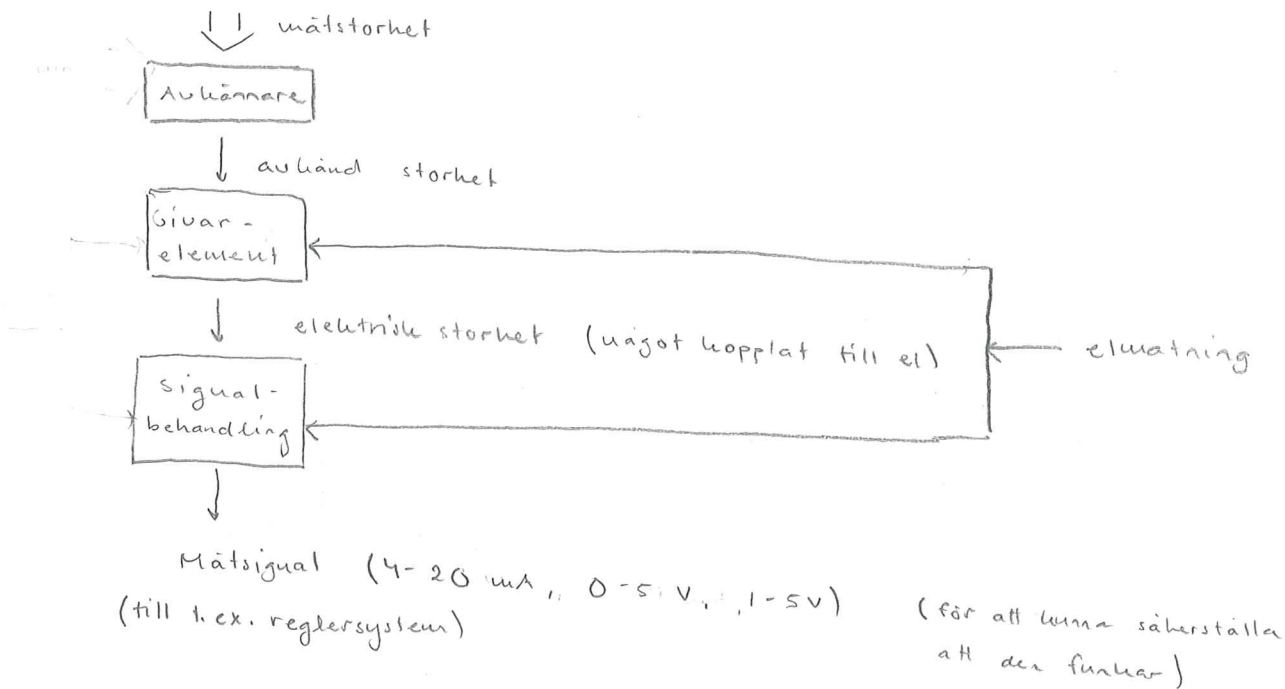 mätstorhet
Avkännare
avkänd storhet
Givar-
element
elektrisk storhet (något kopplat till el)
elmatning
Signal-
behandling
Mätsignal (4-20 mA, 0-5 V, 1-5V)
(till t.ex. reglersystem)
(för att kunna säkerställa
att den funkar)